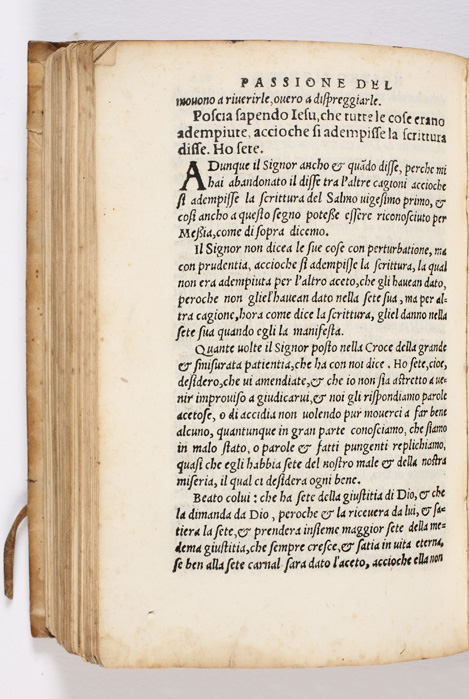 PASSIONE DEL
mouono a riuerirle, ouero a dispreggiarle.
Poscia sapendo Iesu, che tutte le cose erano
adempiute, accioche si adempisse la scrittura
disse. Ho sete.
ADunque il Signor ancho & quādo disse, perche mi
hai abandonato il disse tra l'altre cagioni accioche
si adempisse la scrittura del Salmo uigesimo primo, &
così ancho a questo segno potesse essere riconosciuto per
Meßia, come di sopra dicemo.
Il Signor non dicea le sue cose con perturbatione, ma
con prudentia, accioche si adempisse la scrittura, la qual
non era adempiuta per l'altro aceto, che gli hauean dato,
peroche non gliel'hauean dato nella sete sua, ma per al-
tra cagione, hora come dice la scrittura, gliel danno nella
sete sua quando egli la manifesta.
Quante uolte il Signor posto nella Croce della grande
& smisurata patientia, che ha con noi dice. Ho sete, cioe,
desidero, che ui amendiate, & che io non sia astretto a ue-
nir improuiso a giudicarui, & noi gli rispondiamo parole
acetose, o di accidia non uolendo pur mouerci a far bene
alcuno, quantunque in gran parte conosciamo, che siamo
in malo stato, o parole & fatti pungenti replichiamo,
quasi che egli habbia sete del nostro male & della nostra
miseria, il qual ci desidera ogni bene.
Beato colui: che ha sete della giustitia di Dio, & che
la dimanda da Dio, peroche & la riceuera da lui, & sa-
tiera la sete, & prendera insieme maggior sete della me-
dema giustitia, che sempre cresce, & satia in uita eterna,
se ben alla sete carnal sara dato l'aceto, accioche ella non